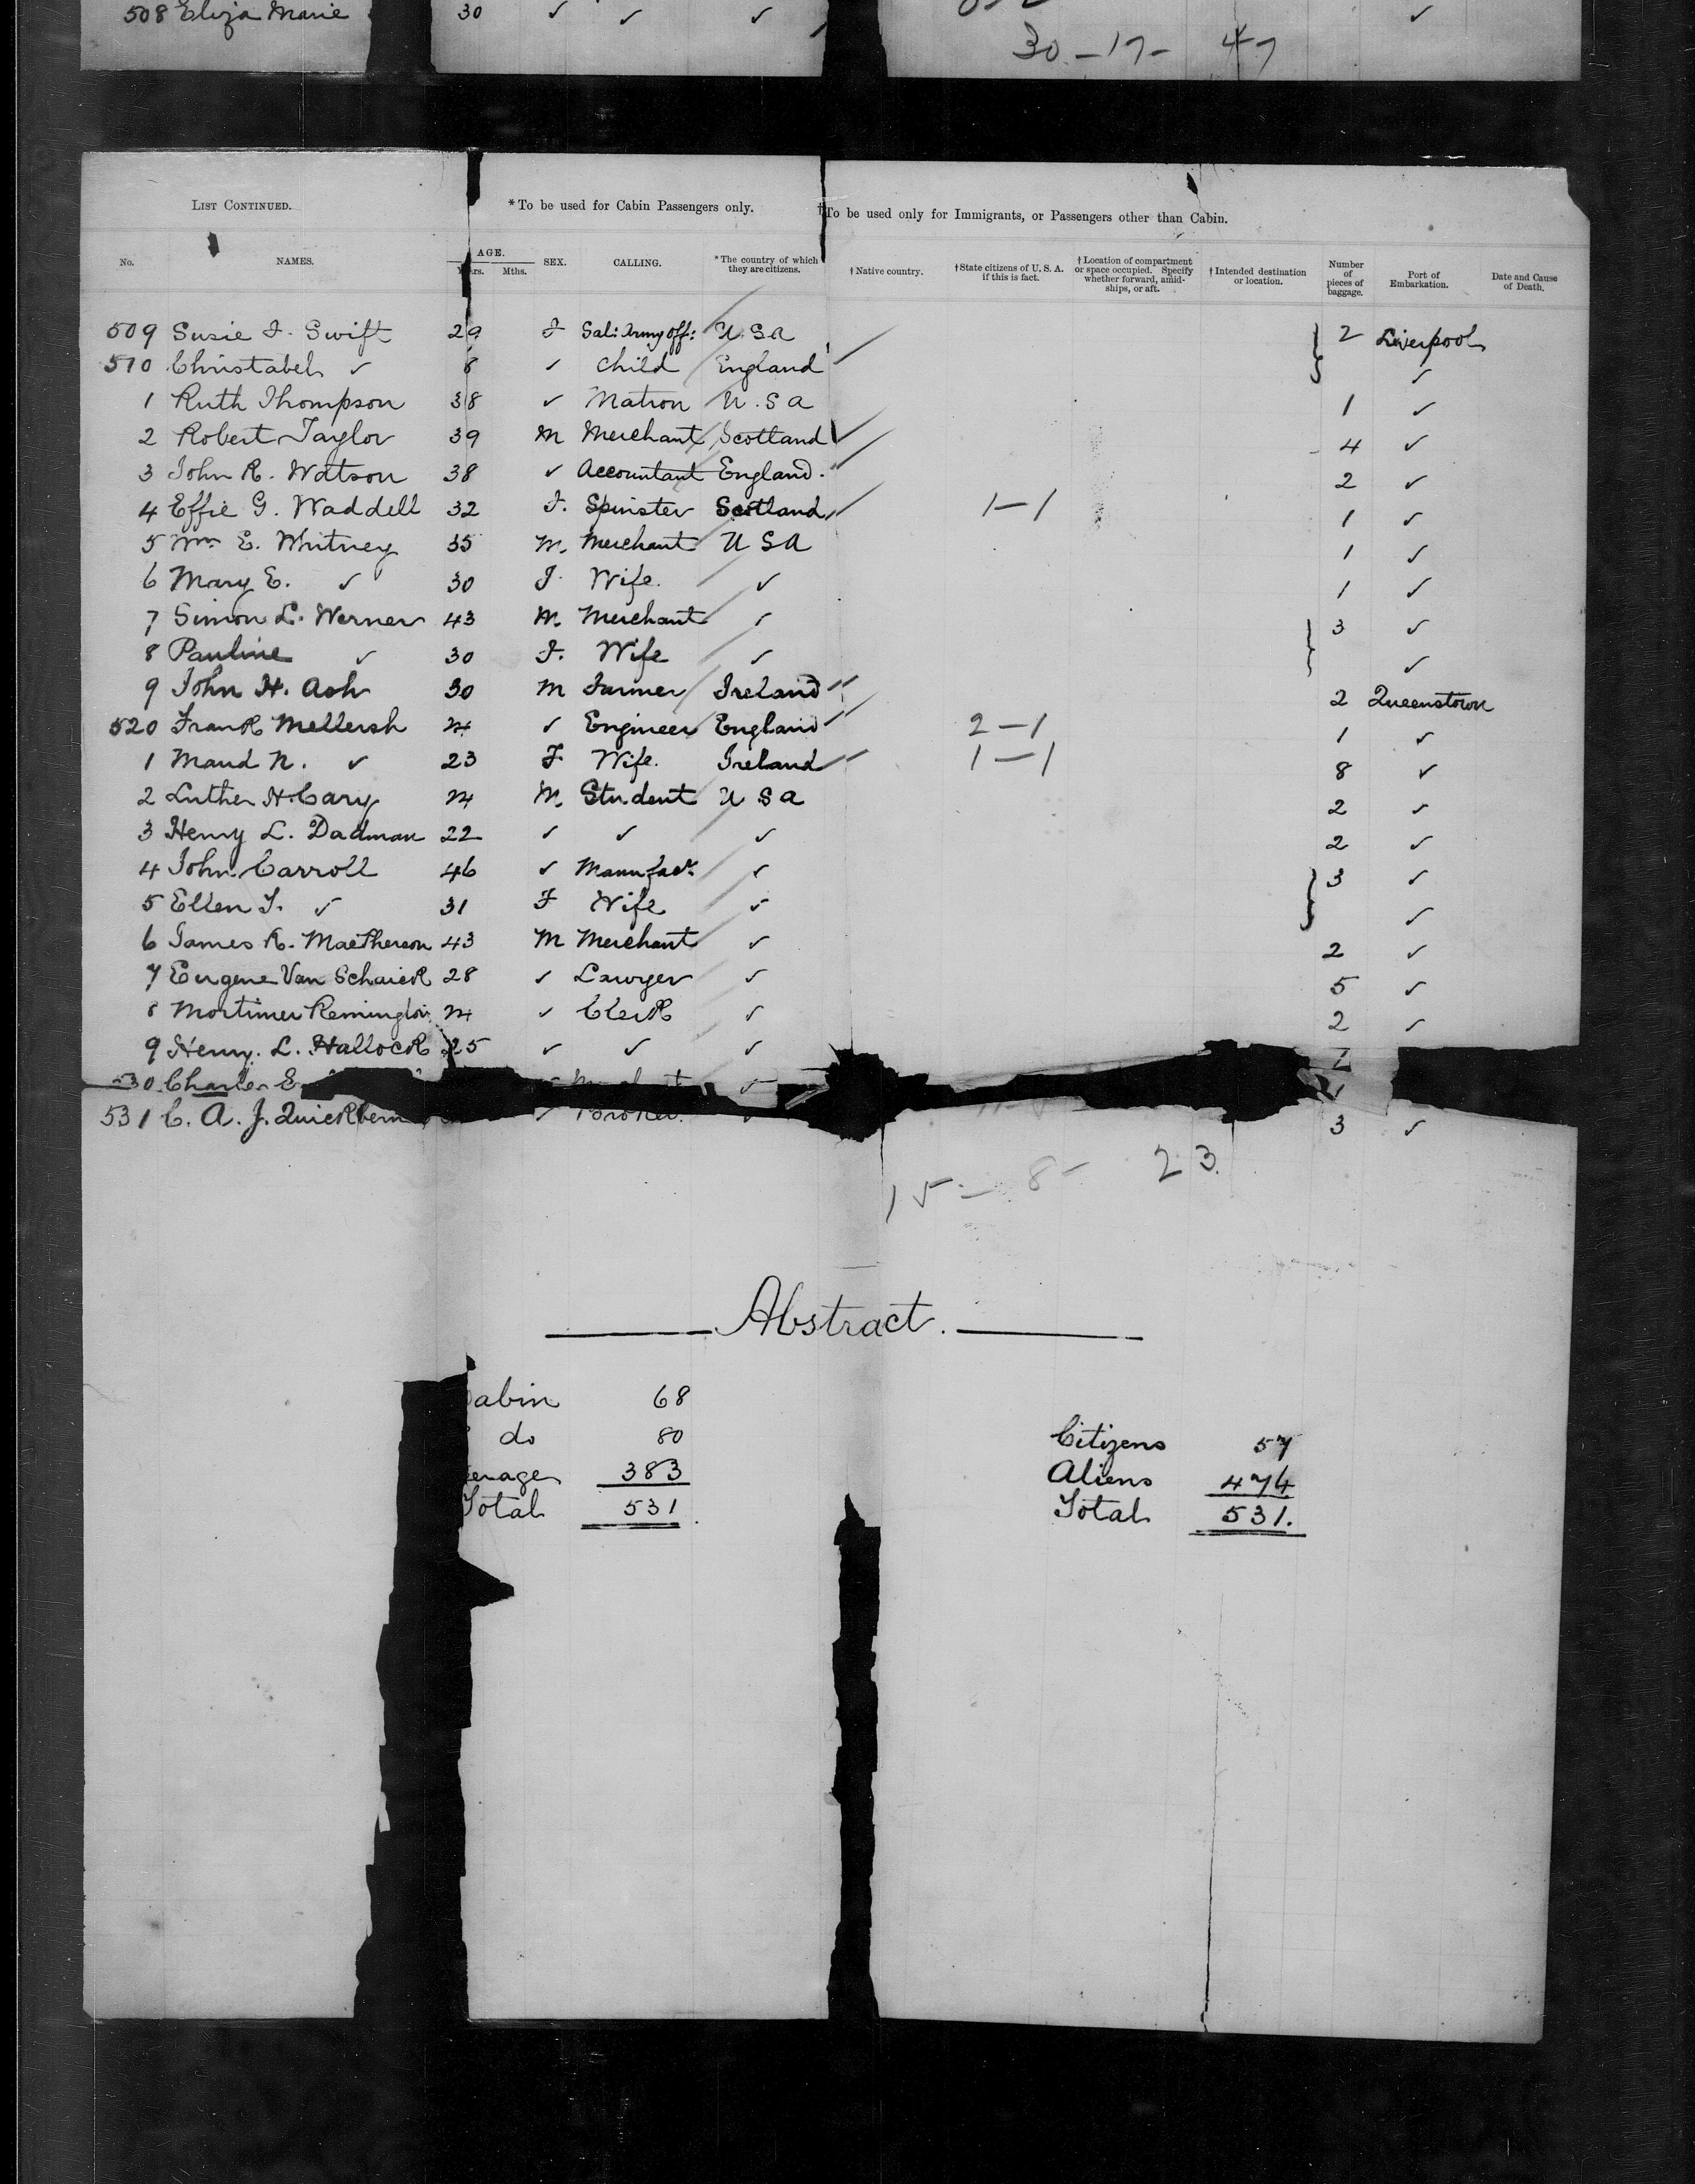 508 Eliza Marie 30 ✓ ✓ ✓ ✓
30 - 17 - 47
LIST CONTINUED. *To be used for Cabin Passengers only. †To be used only for Immigrants, or Passengers other than Cabin.
No. NAMES. AGE. Yrs. Mths. SEX. CALLING. *The country of which they are citizens. †Native country. †State citizens of U. S. A. if this is fact. †Location of compartment or space occupied. Specify whether forward, amidships, or aft. †Intended destination or location. Number of pieces of baggage. Port of Embarkation. Date and Cause of Death.
509 Susie F. Swift 29 F Sal: Army Off: U.S.A 2 Liverpool
510 Christabel ✓ 8 ✓ Child England ✓
1 Ruth Thompson 38 ✓ Matron U.S.A 1 ✓
2 Robert Taylor 39 M Merchant Scotland 4 ✓
3 John R. Watson 38 ✓ Accountant England. 2 ✓
4 Effie G. Waddell 32 F. Spinster Scotland 1-1 1 ✓
5 Wm E. Whitney 35 M. Merchant U S A 1 ✓
6 Mary E. ✓ 30 F. Wife. ✓ 1 ✓
7 Simon L. Werner 43 M. Merchant ✓ 3 ✓
8 Pauline ✓ 30 F. Wife ✓ ✓
9 John H. Ash 30 M Farmer Ireland 2 Queenstown
520 Frank Mellersh 24 ✓ Engineer England 2-1 1 ✓
1 Maud N. ✓ 23 F Wife. Ireland 1-1 8 ✓
2 Luther H. Cary 24 M. Student U S A 2 ✓
3 Henry L. Dadman 22 ✓ ✓ ✓ 2 ✓
4 John Carroll 46 ✓ Manufacr. ✓ 3 ✓
5 Ellen T. ✓ 31 F Wife ✓ ✓
6 James R. MacPherson 43 M Merchant ✓ 2 ✓
7 Eugene Van Schaick 28 ✓ Lawyer ✓ 5 ✓
8 Mortimer Remington 24 ✓ Clerk ✓ 2 ✓
9 Henry. L. Hallock 25 ✓ ✓ ✓
530 Charles E ✓
531 C. A. J. Quickbern ✓ Broker. 3 ✓
15 - 8 - 23
Abstract.
Cabin 68
do 80
erage 383
Total 531
Citizens 57
Aliens 474
Total 531.